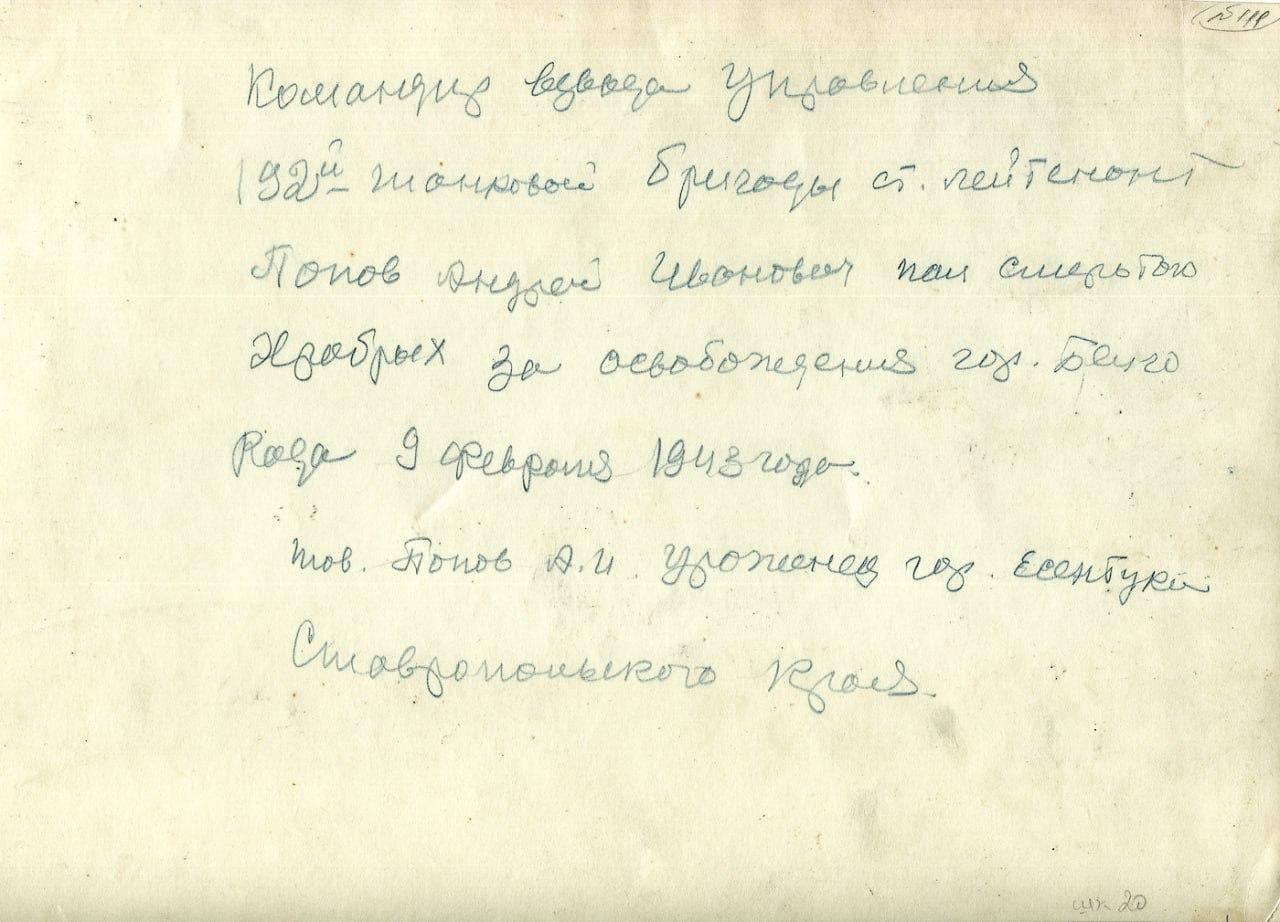 № 119
Командир взвода Управления
192й танковой бригады ст. лейтенант
Попов Андрей Иванович пал смертью
Храбрых за освобождения гор. Белго
Рода 9 февраля 1943 года.
тов. Попов А.И. Уроженец гор. Есентуки
Ставропольского Края.
шк 20